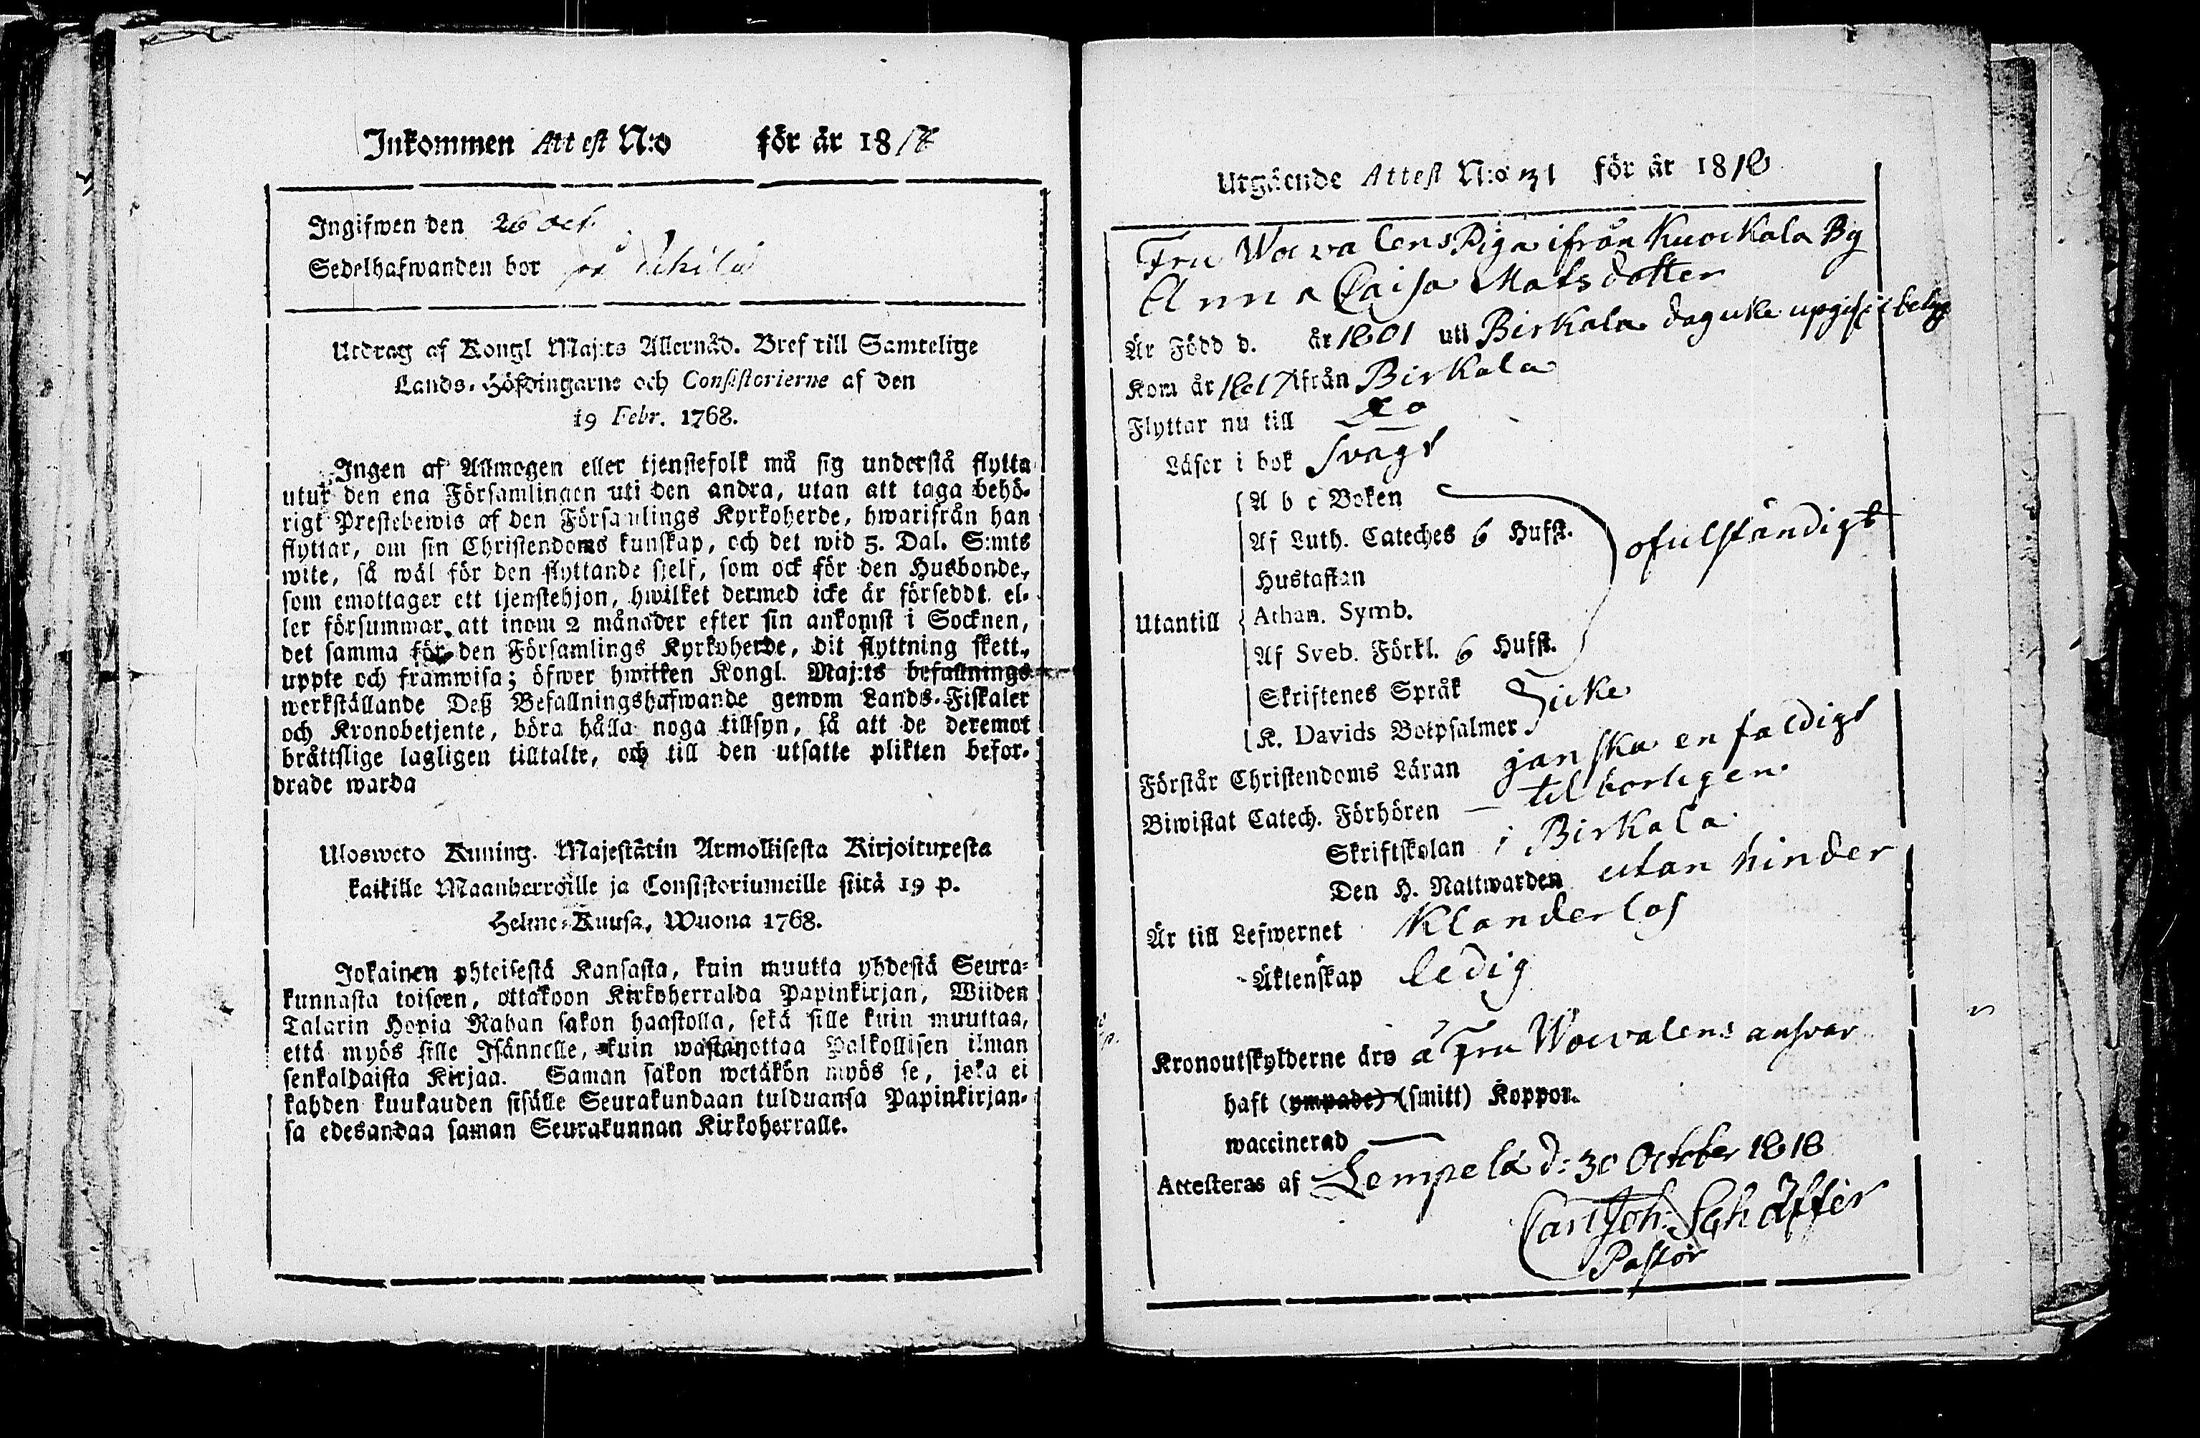 Inkommen Attest N:o för år 1818
Ingifwen den 26 Oct.
Sedelhafwanden bor på
Utdrag af Kongl Maj:ts Allernåd. Bref till Samtelige
Lands-Höfdingarne och Consistorierne af den
19 Febr. 1768.
Ingen af Allmogen eller tjenstefolk må sig understå flytta
utur den ena Församlingen uti den andra, utan att taga behö-
rigt Prestebewis af den Församlings Kyrkoherde, hwarifrån han
flyttar, om sin Christendoms kunskap, och det wid 5. Dal. S:mts
wite, så wäl för den flyttande sjelf, som ock för den Husbonde,
som emottager ett tjenstehjon, hwilket dermed icke är förseddt, el-
ler försummar, att inom 2 månader efter sin ankomst i Socknen,
det samma för den Församlings Kyrkoherde, dit flyttning skett,
uppte och framwisa; öfwer hwilken Kongl. Maj:ts befallnings
werkställande Deß Befallningshafwande genom Lands-Fiskaler
och Kronobetjente, böra hålla noga tillsyn, så att de deremot
brättslige lagligen tilltalte, och till den utsatte plikten befor-
drade warda
Ulosweto Kuning. Majestätin Armollisesta Kirjoituxesta
kaikille Maanherroille ja Consistoriumeille siitä 19 p.
Helme-Kuusa, Wuona 1768.
Jokainen yhteisestä Kansasta, kuin muutta yhdestä Seura-
kunnasta toiseen, ottakoon Kirkoherralda Papinkirjan, Wiiden
Talarin Hopia Rahan sakon haastolla, sekä sille kuin muuttaa,
että myös sille Isännelle, kuin wastanottaa Palkollisen ilman
senkaldaista Kirjaa. Saman sakon wetäkön myös se, joka ei
kahden kuukauden sisälle Seurakundaan tulduansa Papinkirjan-
sa edesandaa saman Seurakunnan Kirkoherralle.
Utgående Attest N:o 31 för år 1818
Fru Woivalens Piga ifrån Kuockala By
Anna Caisa Matsdotter
Är Född d. år 1801 uti Birkala dag icke upgif i betyg
Kom år 1817 ifrån Birkala
Flyttar nu till Do
Läser i bok svagt
A b c Boken
Af Luth. Cateches 6 Hufst. ofulständigt
Hustaflan
Utantill Athan. Symb.
Af Sveb. Förkl. 6 Hufst.
Skriftenes Språk icke
K. Davids Botpsalmer
Förstår Christendoms Läran ganska enfaldigt
Biwistat Catech. Förhören tilbörligen
Skriftskolan i Birkala
Den H. Nattwarden utan hinder
Är till Lefwernet klanderlös
Äktenskap ledig
Kronoutskylderne äro å Fru Woivalens ansvar
haft (ympade) (smitt) Koppor.
waccinerad —
Attesteras af Lempelä d: 30 October 1818
Carl Joh: Schäffer
Pastor